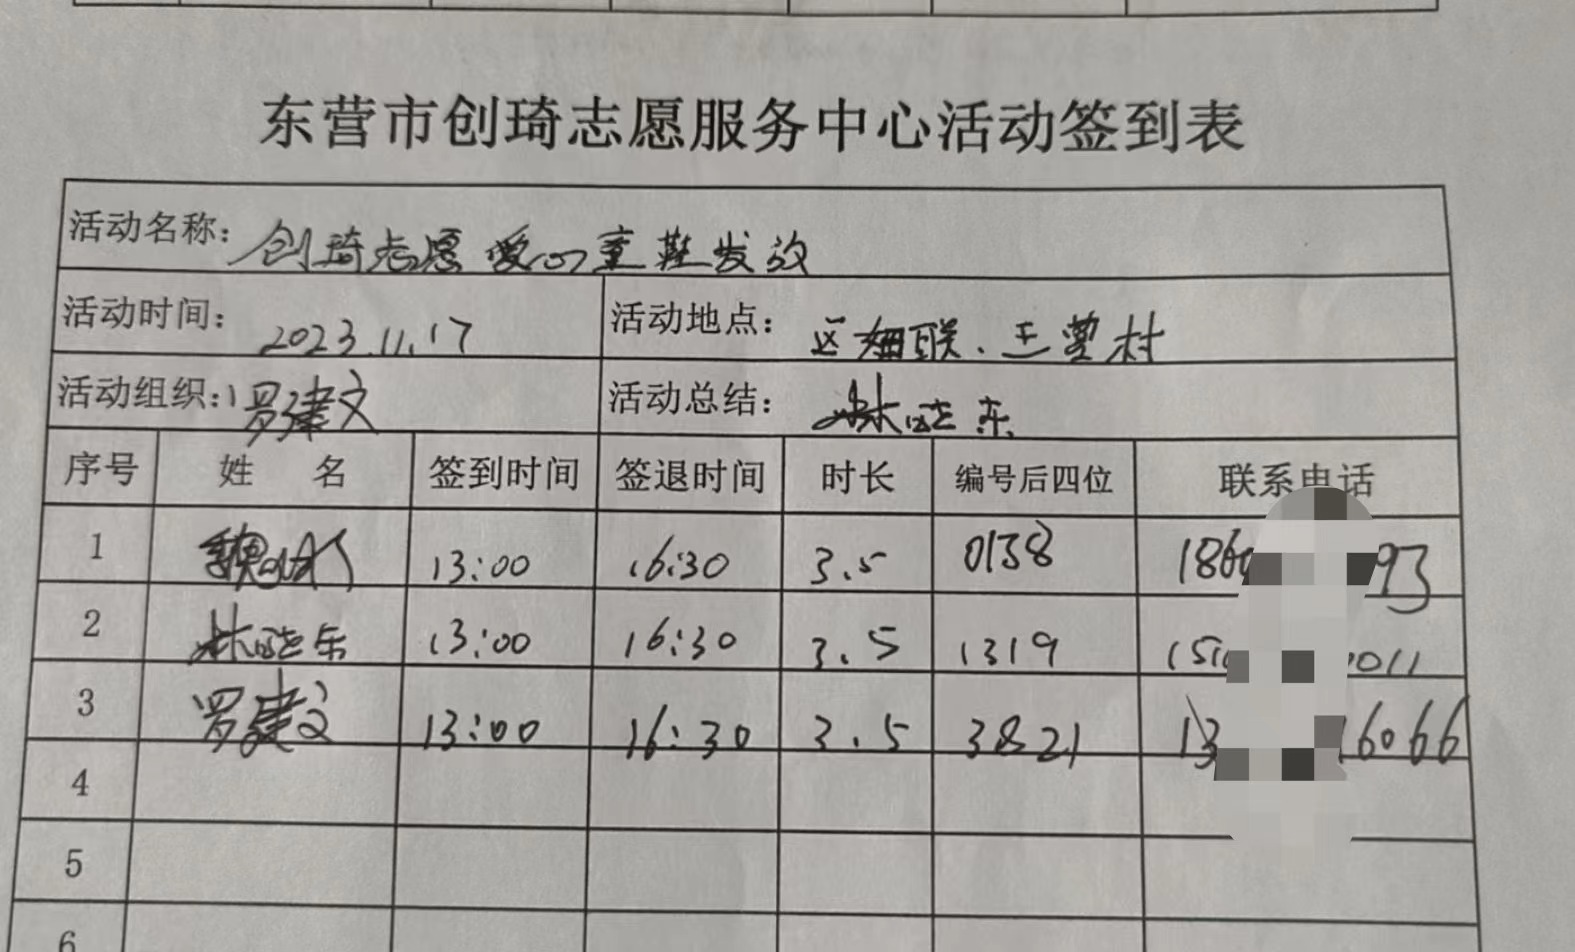 东营市创琦志愿服务中心活动签到表
活动名称: 创琦志愿爱心童鞋发放
活动时间: 2023.11.17 活动地点: 区妇联、王营村
活动组织: 罗建文 活动总结: 林晓东
序号 姓 名 签到时间 签退时间 时长 编号后四位 联系电话
1 13:00 16:30 3.5 0138 186 93
2 林晓东 13:00 16:30 3.5 1319 151 011
3 罗建文 13:00 16:30 3.5 3821 13 16066
4
5
6